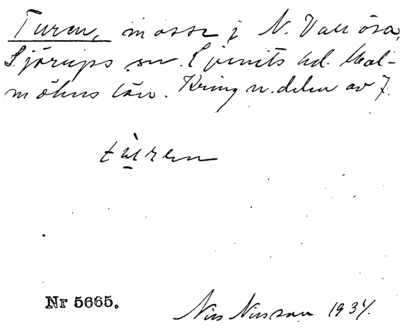 Turen, mosse i N. Vallösa,
Sjörups sn. Ljunits hd. Mal-
möhus län. Kring n. delen av 7.
tu̱ren
Nr 5665.
Nils Nilsson 1934.